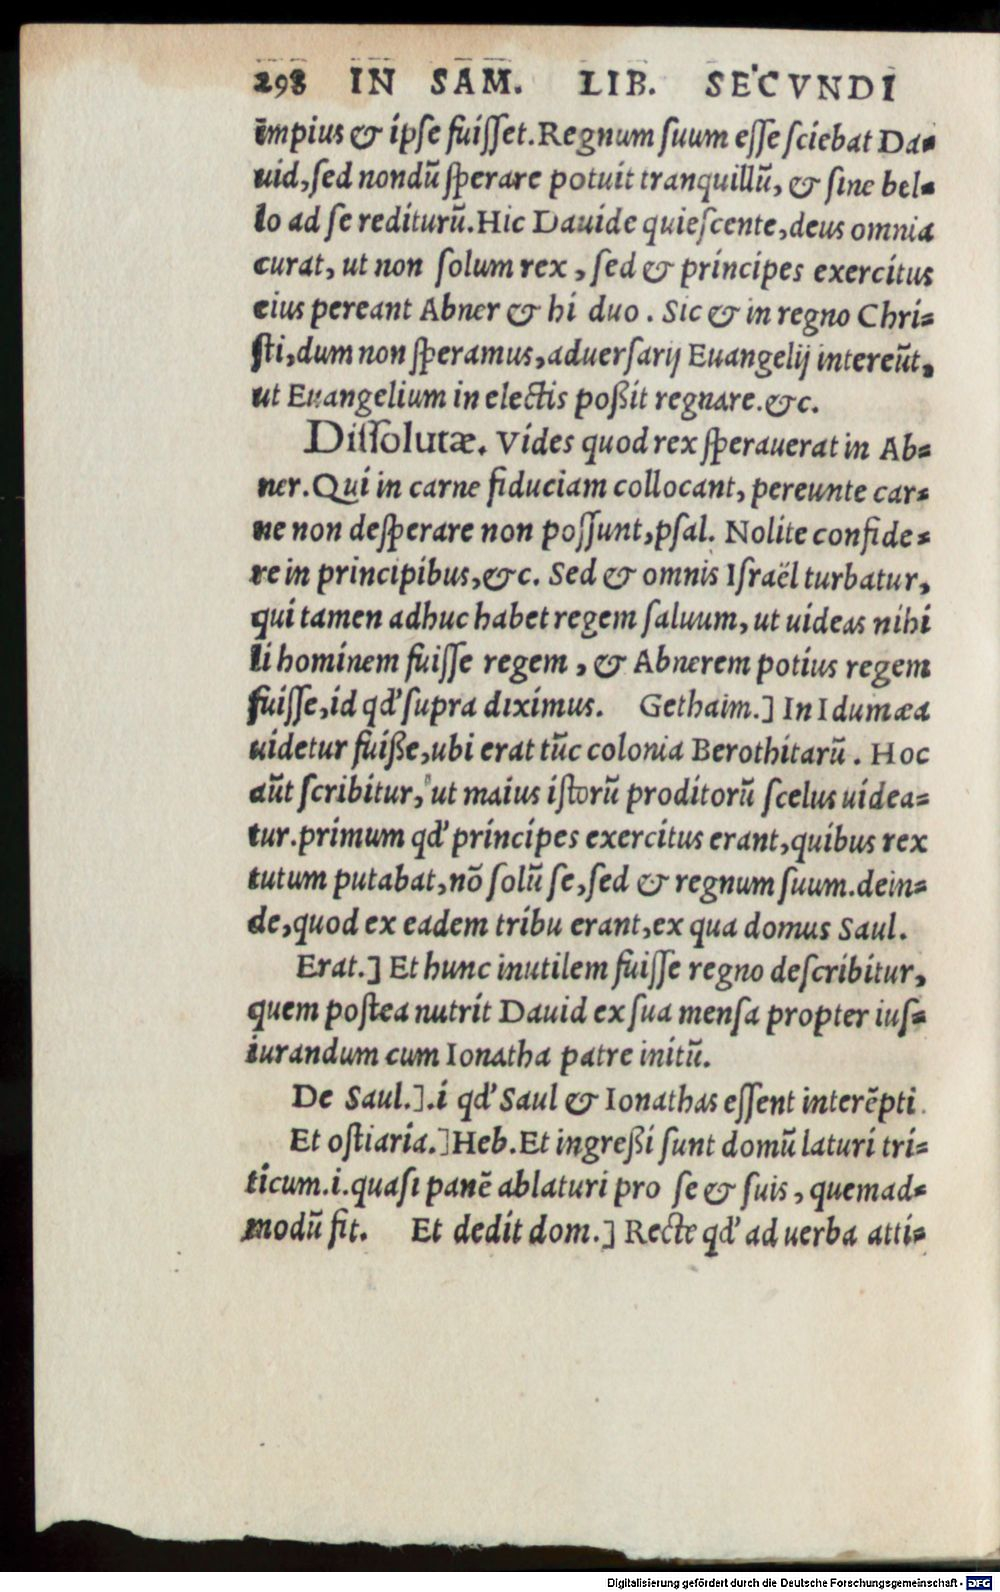 298 IN SAM. LIB. SECVNDI
impius & ipse fuisset. Regnum suum esse sciebat Da-
uid, sed nondū sperare potuit tranquillū, & sine bel-
lo ad se rediturū. Hic Dauide quiescente, deus omnia
curat, ut non solum rex, sed & principes exercitus
eius pereant Abner & hi duo. Sic & in regno Chri-
sti, dum non speramus, aduersarij Euangelij intereūt,
ut Euangelium in electis poßit regnare. &c.
Dissolutæ. Vides quod rex sperauerat in Ab-
ner. Qui in carne fiduciam collocant, pereunte car-
ne non desperare non possunt, psal. Nolite confide-
re in principibus, &c. Sed & omnis Israël turbatur,
qui tamen adhuc habet regem saluum, ut uideas nihi
li hominem fuisse regem, & Abnerem potius regem
fuisse, id qđ supra diximus. Gethaim.] In Idumæa
uidetur fuiße, ubi erat tūc colonia Berothitarū. Hoc
aūt scribitur, ut maius istorū proditorū scelus uidea-
tur. primum qđ principes exercitus erant, quibus rex
tutum putabat, nō solū se, sed & regnum suum. dein-
de, quod ex eadem tribu erant, ex qua domus Saul.
Erat.] Et hunc inutilem fuisse regno describitur,
quem postea nutrit Dauid ex sua mensa propter ius-
iurandum cum Ionatha patre initū.
De Saul.] .i qđ Saul & Ionathas essent interēpti.
Et ostiaria.] Heb. Et ingreßi sunt domū laturi tri-
ticum. i. quasi panē ablaturi pro se & suis, quemad-
modū fit. Et dedit dom.] Recte qđ ad uerba atti-
Digitalisierung gefördert durch die Deutsche Forschungsgemeinschaft - DFG